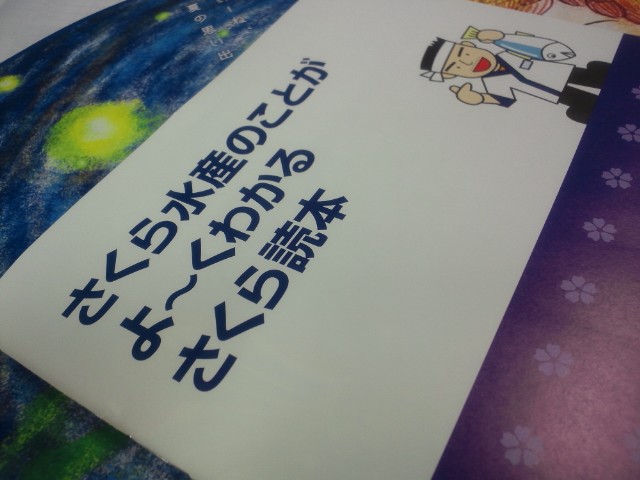 さくら水産のことが
よ〜くわかる
さくら読本